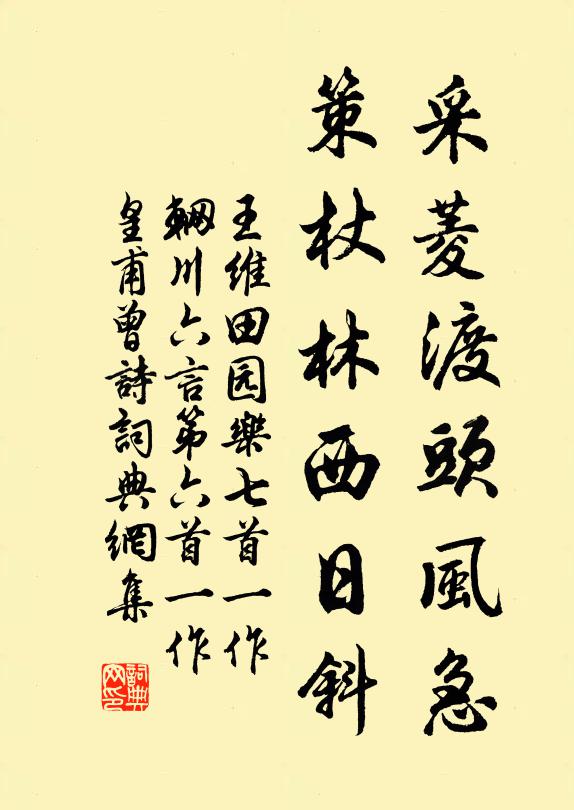 采菱渡頭風急
策杖林西日斜
王維田园樂七首一作
輞川六言第六首一作
皇甫曾詩詞典網集
詞典
网印